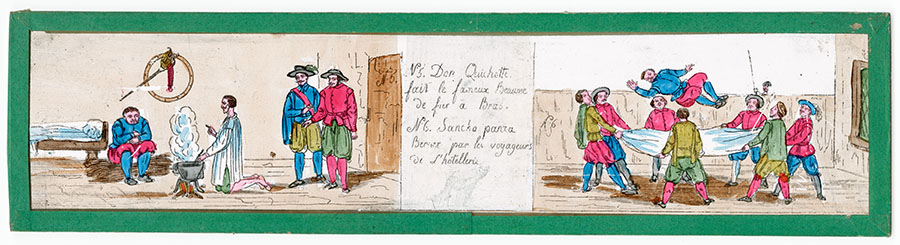 N5. Don Quichotte.
fait le fameux Beaume
de fier à Bras.
N6. Sancha panza
Berné par les voyageurs
de L'hôtellerie
N6